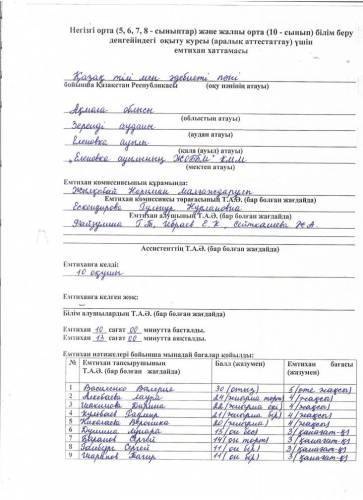 Негізгі орта (5, 6, 7, 8 - сыныптар) және жалпы орта (10 - сынып) білім беру
деңгейіндегі оқыту курсы (аралық аттестаттау) үшін
емтихан хаттамасы
Қазақ тілі мен әдебиеті пәні
бойынша Қазақстан Республикасы (оқу пәнінің атауы)
Ақмола облысы
(облыстың атауы)
Зеренді ауданы
(аудан атауы)
Еленовка ауылы
(қала (ауыл) атауы)
"Еленовка ауылының ЖОББМ" КММ
(мектеп атауы)
Емтихан комиссиясының құрамында:
Емтихан комиссиясы төрағасының Т.А.Ә. (бар болған жағдайда)
Ескендирова Гульнур Нурлановна
Емтихан алушының Т.А.Ә. (бар болған жағдайда)
Файзулина Г.Т., Ибраев Е.К.
Ассистенттің Т.А.Ә. (бар болған жағдайда)
Емтиханға келді:
10 оқушы
Емтиханға келген жоқ:
Білім алушылардың Т.А.Ә. (бар болған жағдайда)
Емтихан 10 сағат 00 минутта басталды.
Емтихан 13 сағат 00 минутта аяқталды.
Емтихан нәтижелері бойынша мынадай бағалар қойылды:
№ Емтихан тапсырушының Балл (жазумен) Емтихан бағасы
Т.А.Ә. (бар болған жағдайда) (жазумен)
1 Василенко Валерия 30 (отыз) 5 (өте жақсы)
2 24 (жиырма төрт) 4 (жақсы)
3 Дарина 22 (жиырма екі) 4 (жақсы)
4 21 (жиырма бір) 4 (жақсы)
5 Вероника 20 (жиырма) 4 (жақсы)
6 15 (он бес) 3 (қанағат-қ)
7 Сергей 14 (он төрт) 3 (қанағат-қ)
8 Сергей 11 (он бір) 3 (қанағат-қ)
9 11 (он бір) 3 (қанағат-қ)